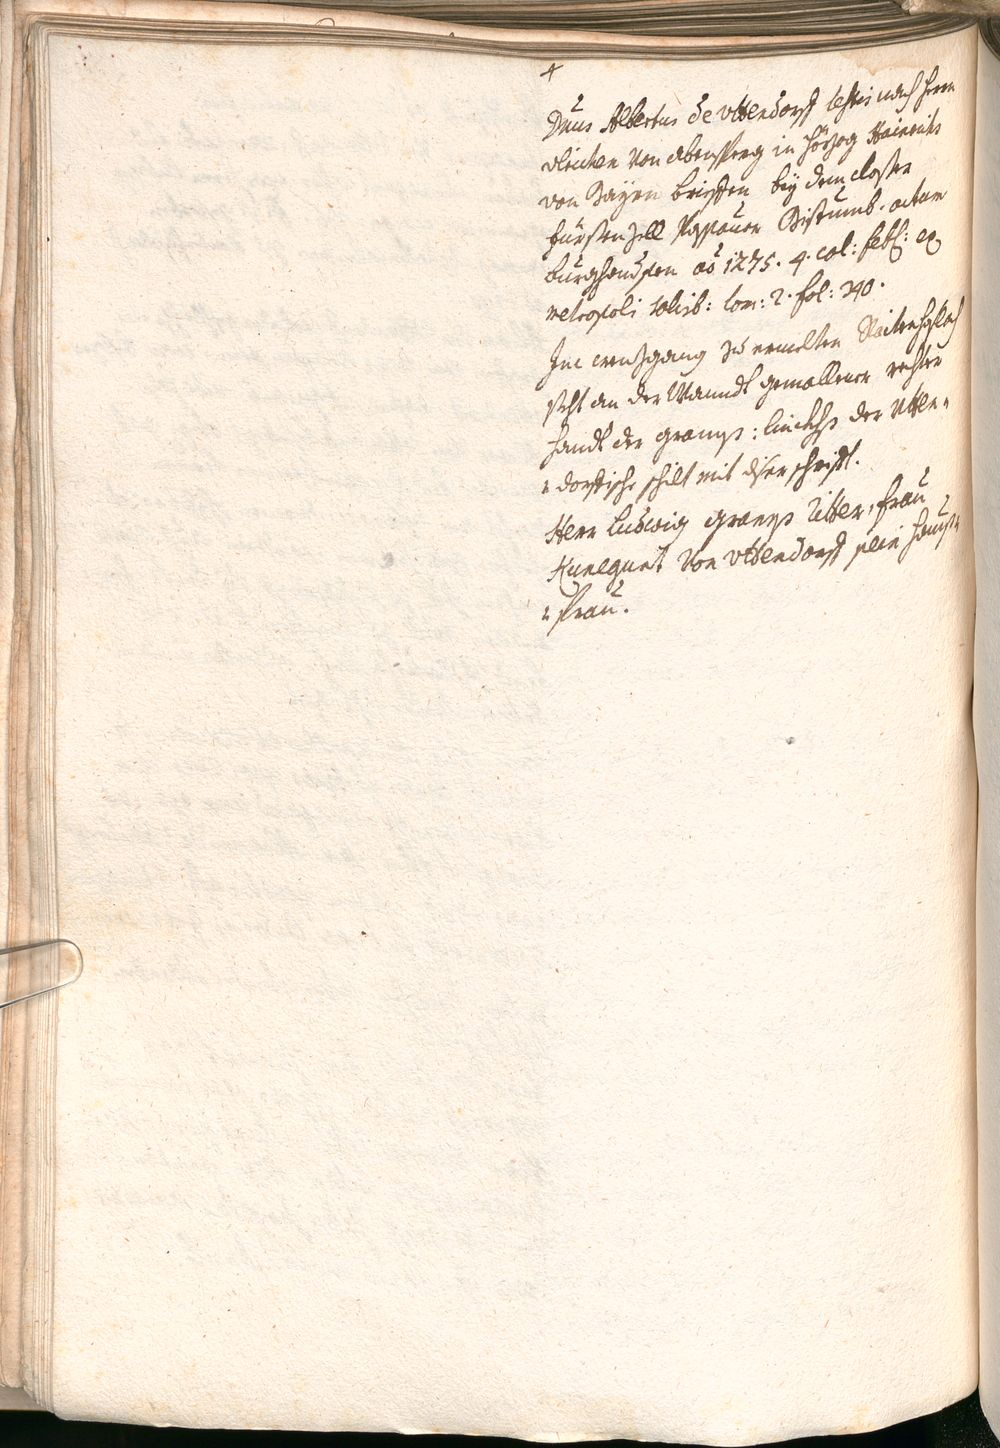 4
Dnus Albertus de Uttendorff testis nach Herrn
Ulrichen von Abensperg in Hörzog Hainrichs
von Bayrn brieffen bey dem closter
Fürstenzell Passauer Bistumb. actum
Burghausen ao 1275. 4. cal: febr: ex
metropoli salisb: tom: 2. fol: 240.
Im creuzgang zu ermelten Raitenhaslach
steht an der Wanndt gemallener rechter
handt der granns: linckhs der Utten=
=dorffische schilt mit diser schrifft.
Herr Ludwig granns Ritter, frau
Kunegunt von Uttendorff sein hauß=
=frau.